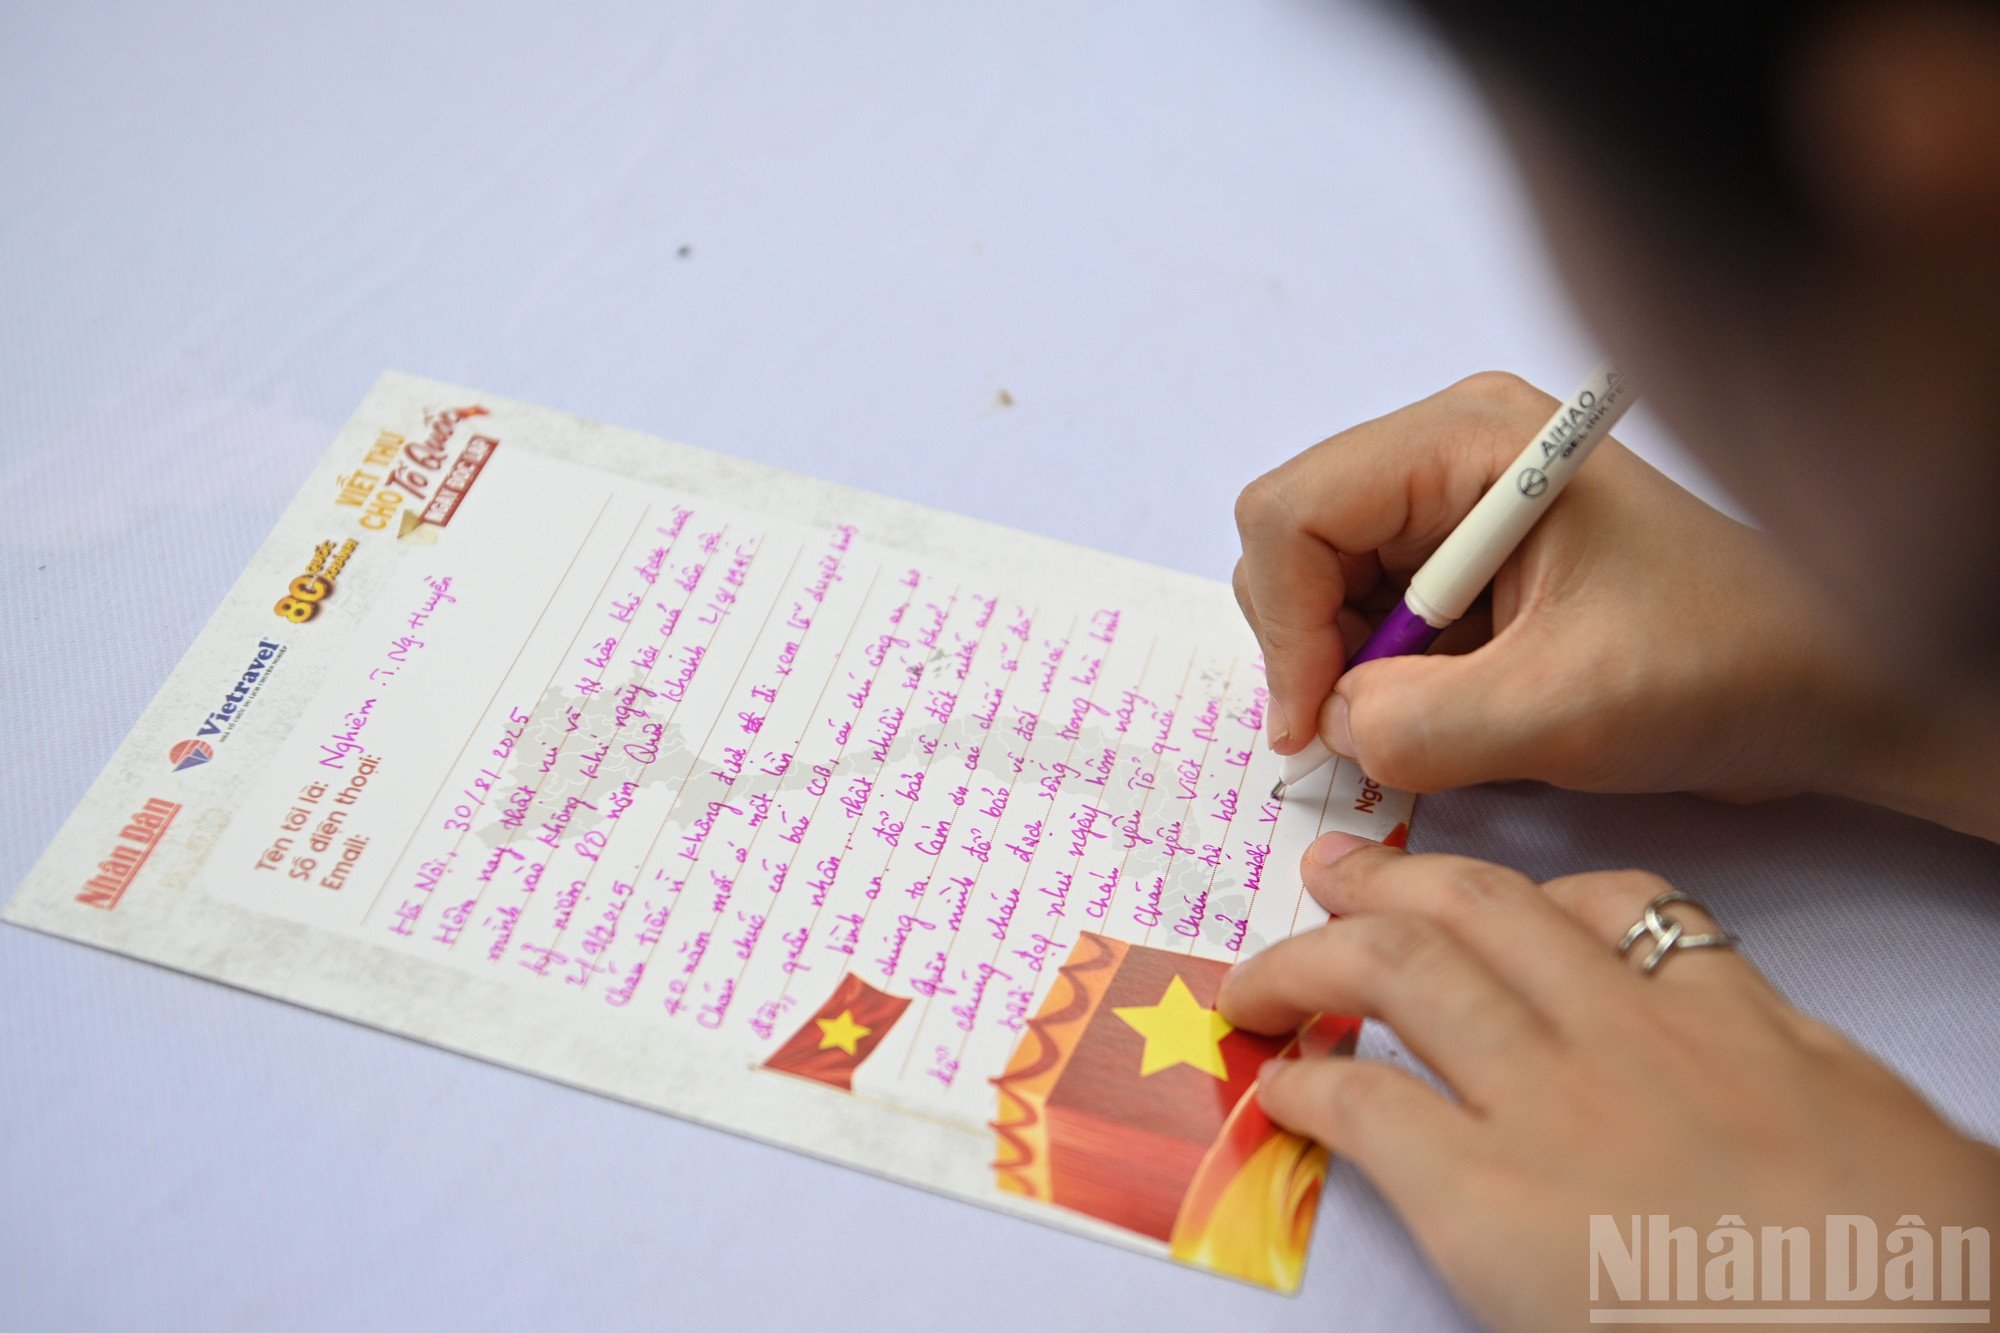 Nhân Dân
Vietravel
NHÀ TỔ CHỨC DU LỊCH CHUYÊN NGHIỆP
80 QUỐC KHÁNH
VIẾT THƯ
CHO TỔ QUỐC
NGÀY ĐỘC LẬP
Tên tôi là: Nghiêm .T. Ng. Huyền
Số điện thoại:
Email:
Hà Nội, 30/8/2025
Hôm nay thật vui và tự hào khi được hoà
mình vào không khí ngày hội của dân tộc
kỷ niệm 80 năm Quốc Khánh 2/9/1945 -
2/9/2025.
Cháu tiếc vì không được đi xem lễ duyệt binh
40 năm mới có một lần.
Cháu chúc các bác CCB, các chú công an, bộ
đội, quân nhân,... thật nhiều sức khoẻ
bình an, để bảo vệ đất nước của
chúng ta. Cảm ơn các chiến sĩ đã
quên mình để bảo vệ đất nước
để chúng cháu được sống trong hoà bình
tươi đẹp như ngày hôm nay.
Cháu yêu Tổ quốc,
Cháu yêu Việt Nam
Cháu tự hào là công
của nước Vi
Ngà
AIHAO
GEL INK PE
Nhân Dân